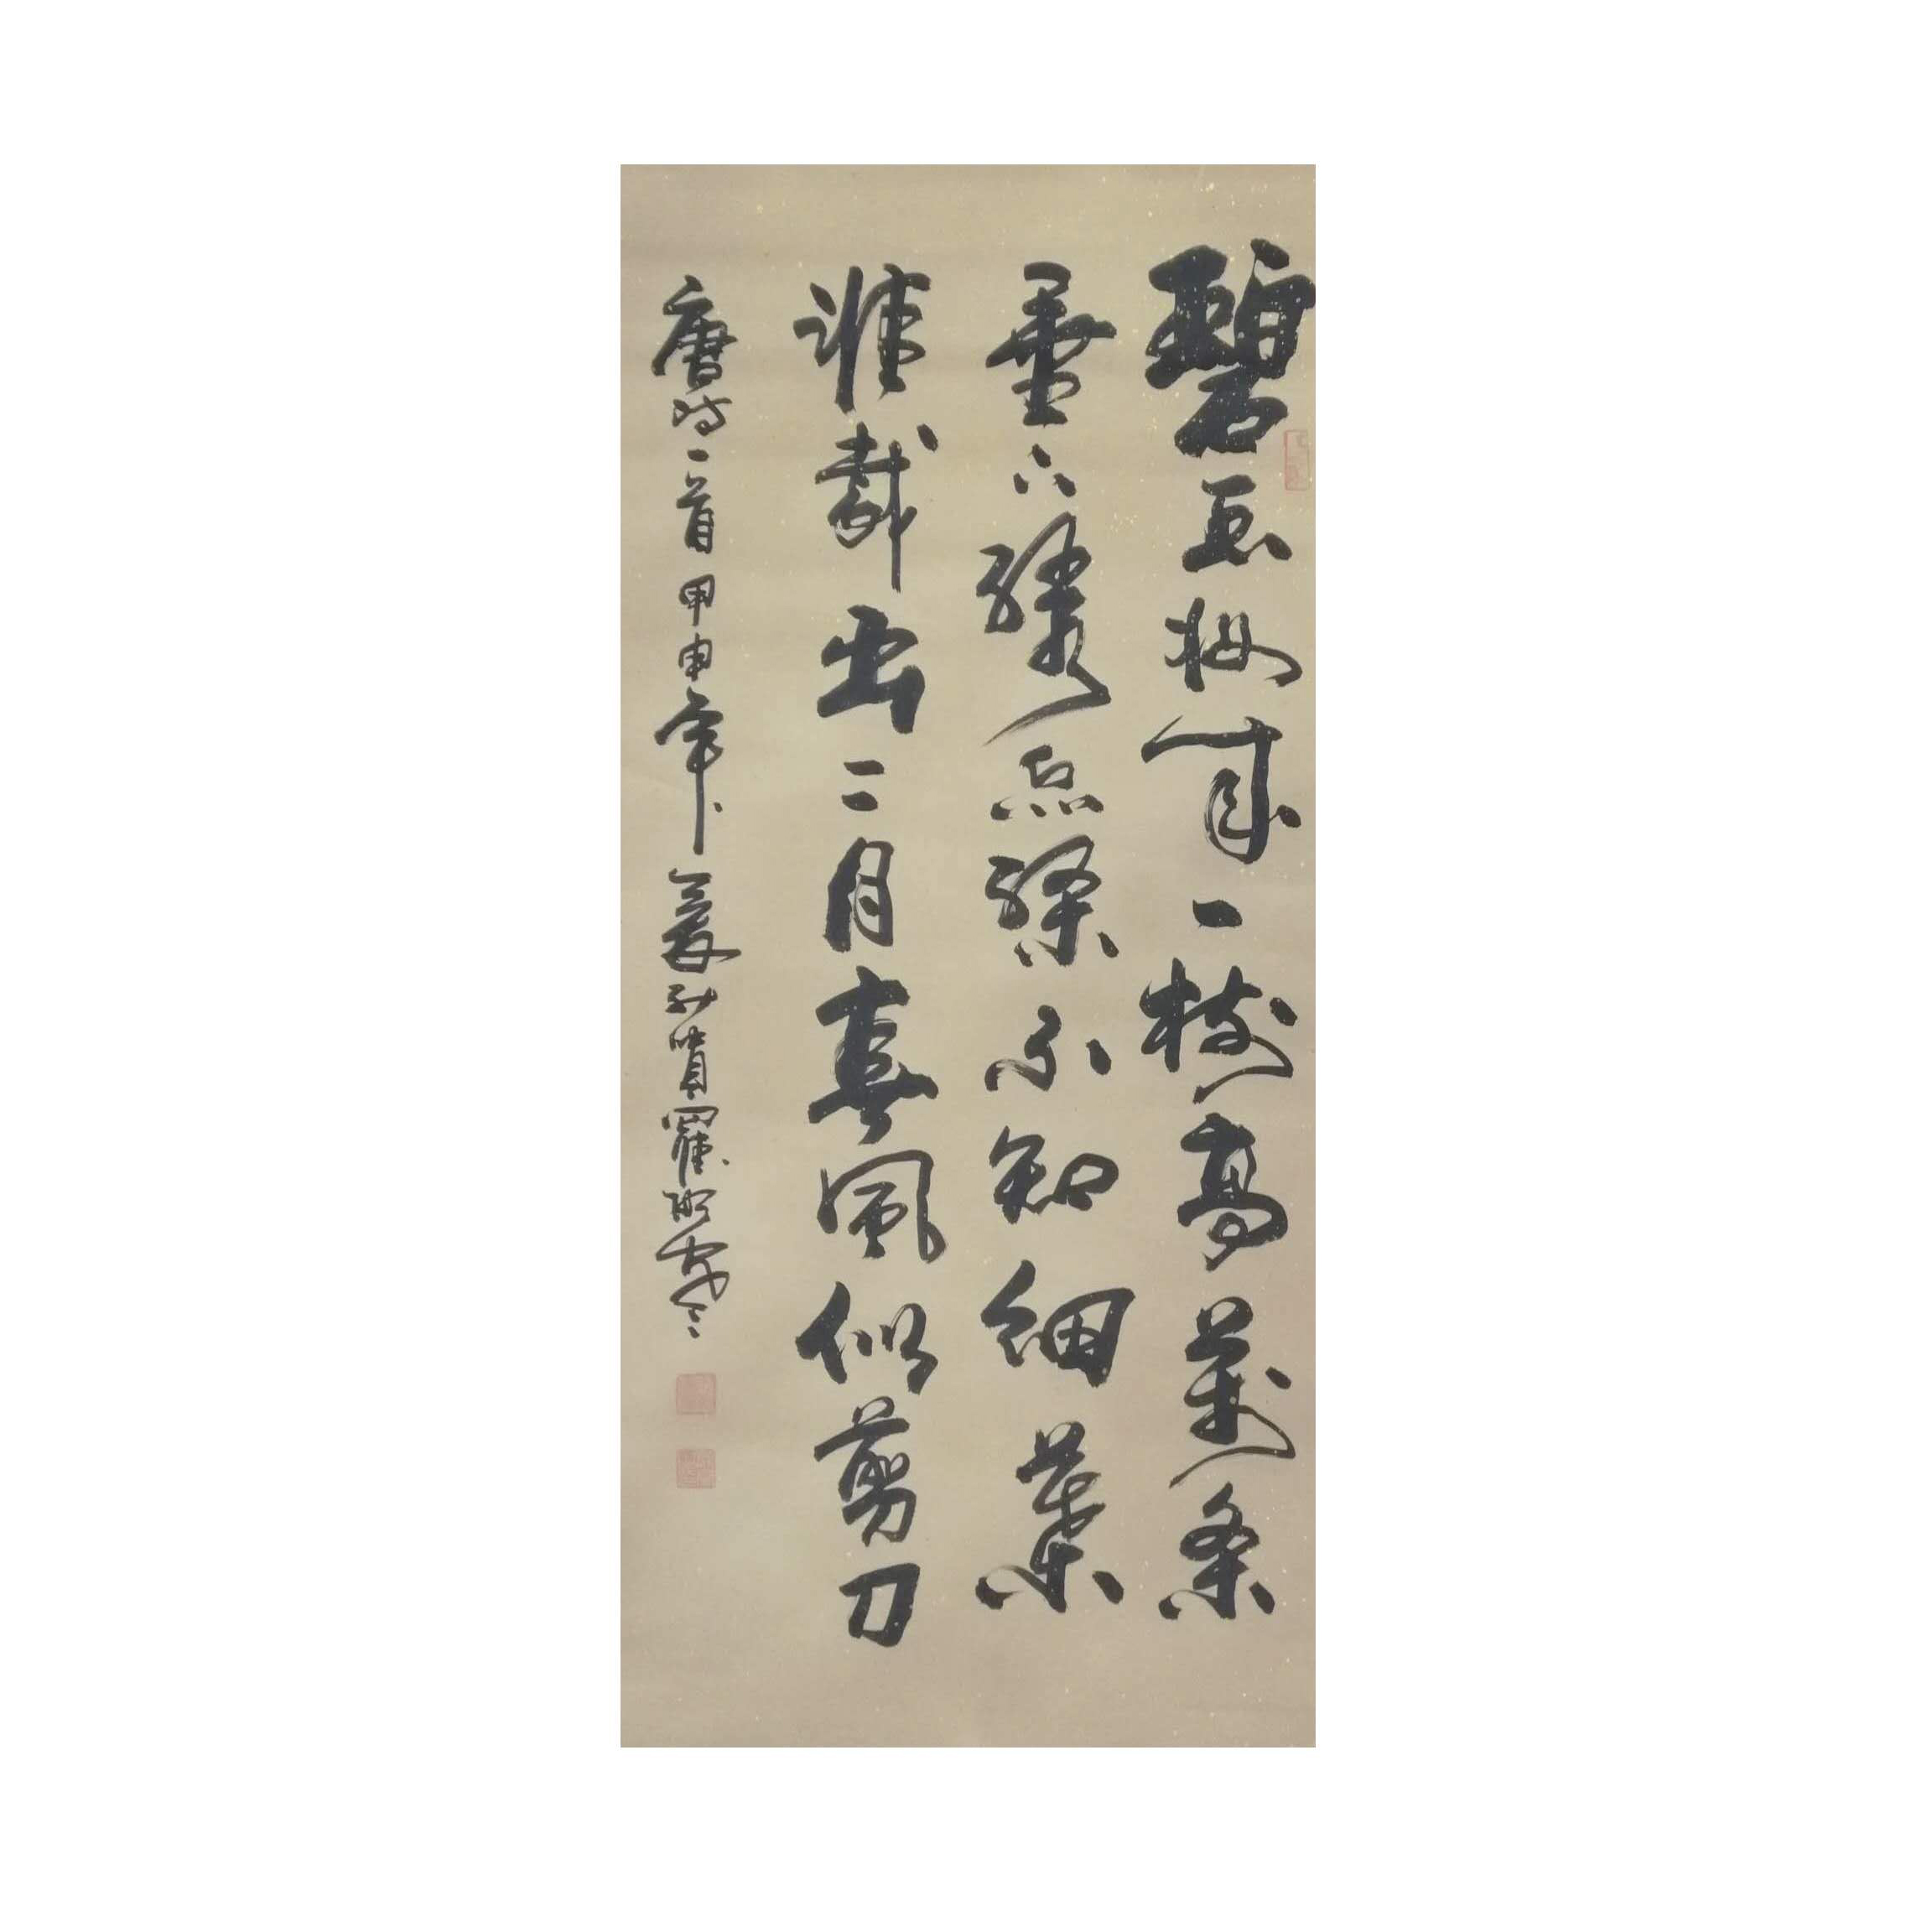 碧玉妝成一樹高萬条
垂下綠丝絛不知細葉
誰裁出二月春風似剪刀
唐詩一首甲申年夏